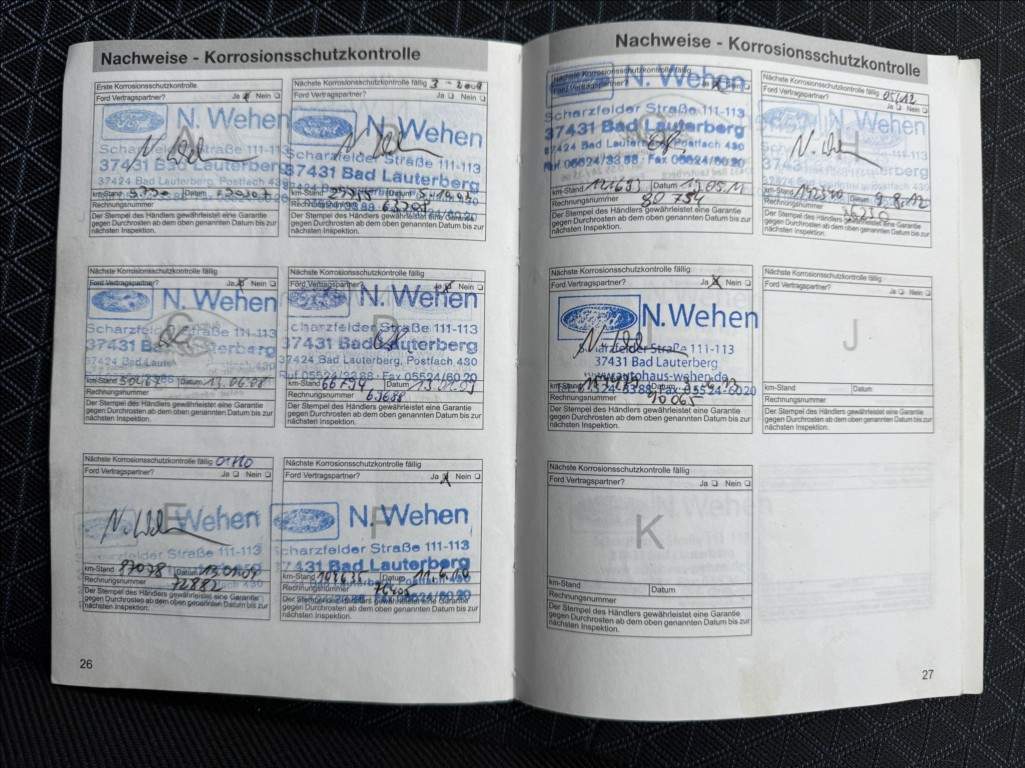 Nachweise - Korrosionsschutzkontrolle
Erste Korrosionsschutzkontrolle
Ford Vertragspartner? Ja Nein
Ford
N. Wehen
A
Scharzfelder Straße 111-113
37431 Bad Lauterberg
37424 Bad Lauterberg, Postfach 43
km-Stand Datum
Rechnungsnummer
Der Stempel des Händlers gewährleistet eine Garantie
gegen Durchrosten ab dem oben genannten Datum bis zur
nächsten Inspektion.
Nächste Korrosionsschutzkontrolle fällig 3-2009
Ford Vertragspartner? Ja Nein
Ford
N. Wehen
B
Scharzfelder Straße 111-113
37431 Bad Lauterberg
km-Stand Datum
Rechnungsnummer 63705
Der Stempel des Händlers gewährleistet eine Garantie
gegen Durchrosten ab dem oben genannten Datum bis zur
nächsten Inspektion.
Nächste Korrosionsschutzkontrolle fällig
Ford Vertragspartner? Ja Nein
N. Wehen
C
Scharzfelder Straße 111-113
37431 Bad Lauterberg
37424 Bad Laute
km-Stand 50467 Datum 13.06.08
Rechnungsnummer
Der Stempel des Händlers gewährleistet eine Garantie
gegen Durchrosten ab dem oben genannten Datum bis zur
nächsten Inspektion.
Nächste Korrosionsschutzkontrolle fällig
N. Wehen
D
charzfelder Straße 111-113
37431 Bad Lauterberg
37424 Bad Lauterberg, Postfach 430
Ruf 05524/3388 · Fax 05524/6020
km-Stand 66794 Datum 13.01.09
Rechnungsnummer 69688
Der Stempel des Händlers gewährleistet eine Garantie
gegen Durchrosten ab dem oben genannten Datum bis zur
nächsten Inspektion.
Nächste Korrosionsschutzkontrolle fällig 01/10
Ford Vertragspartner? Ja Nein
N. Wehen
E
Scharzfelder Straße 111-113
km-Stand 87078 Datum
Rechnungsnummer 72882
Der Stempel des Händlers gewährleistet eine Garantie
gegen Durchrosten ab dem oben genannten Datum bis zur
nächsten Inspektion.
Nächste Korrosionsschutzkontrolle fällig
Ford Vertragspartner? Ja Nein
Ford
N. Wehen
F
Scharzfelder Straße 111-113
37431 Bad Lauterberg
km-Stand Datum
Rechnungsnummer
Der Stempel des Händlers gewährleistet eine Garantie
gegen Durchrosten ab dem oben genannten Datum bis zur
nächsten Inspektion.
26
Nachweise - Korrosionsschutzkontrolle
Nächste Korrosionsschutzkontrolle fällig
Ford Vertragspartner?
N. Wehen
Scharzfelder Straße 111-113
37431 Bad Lauterberg
37424 Bad Lauterberg, Postfach 430
Ruf 05524/3388 · Fax 05524/6020
km-Stand 121693 Datum 19.05.11
Rechnungsnummer 80754
Der Stempel des Händlers gewährleistet eine Garantie
gegen Durchrosten ab dem oben genannten Datum bis zur
nächsten Inspektion.
Nächste Korrosionsschutzkontrolle fällig
Ford Vertragspartner? 05/12
Ja Nein
N. Wehen
H
Scharzfelder Straße 111-113
km-Stand 142340 Datum 9.8.12
Rechnungsnummer
Der Stempel des Händlers gewährleistet eine Garantie
gegen Durchrosten ab dem oben genannten Datum bis zur
nächsten Inspektion.
Nächste Korrosionsschutzkontrolle fällig
Ford Vertragspartner? Ja Nein
Ford
N. Wehen
Scharzfelder Straße 111-113
37431 Bad Lauterberg
www.autohaus-wehen.de
Rechnungsnummer
Der Stempel des Händlers gewährleistet eine Garantie
gegen Durchrosten ab dem oben genannten Datum bis zur
nächsten Inspektion.
Nächste Korrosionsschutzkontrolle fällig
Ford Vertragspartner?
Ja Nein
J
km-Stand Datum
Rechnungsnummer
Der Stempel des Händlers gewährleistet eine Garantie
gegen Durchrosten ab dem oben genannten Datum bis zur
nächsten Inspektion.
Nächste Korrosionsschutzkontrolle fällig
Ford Vertragspartner? Ja Nein
K
km-Stand
Datum
Rechnungsnummer
Der Stempel des Händlers gewährleistet eine Garantie
gegen Durchrosten ab dem oben genannten Datum bis zur
nächsten Inspektion.
27